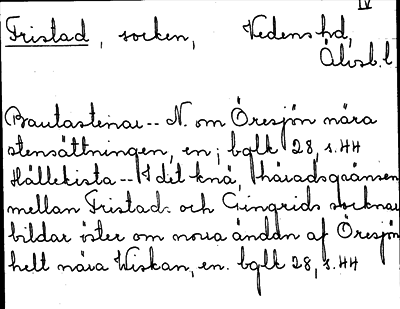 IV
Fristad, socken, Vedens hd,
Älvsb. l.
Bautastenar -- N. om Öresjön nära
stensättningen, en; bglk 28, s. 44
Hällekista -- I det knä, häradsgränsen
mellan Fristad- och Gingrids socknar
bildar öster om norra ändan af Öresjön
helt nära Wiskan, en. bglk 28, s. 44